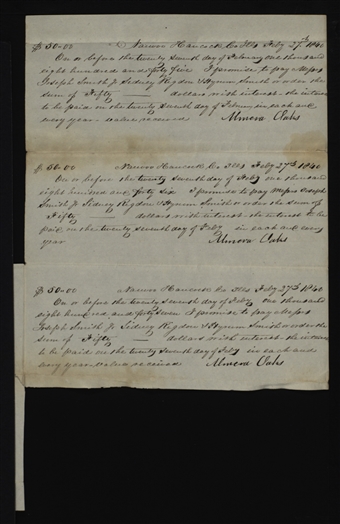 $50-00 Nauvoo Hancock Co Ills Feby 27th 1840
On or before the twenty Seventh day of February one thousand
eight hundred and fifty five I promise to pay Messrs
Joseph Smith Jr Sidney Rigdon & Hyrum Smith or order the
sum of Fifty — dollars with interest the interest
to be paid on the twenty Seventh day of in each and
every year value received Almera Oaks
$50-00 Nauvoo Hancock Co Ills Feby 27th 1840
On or before the twenty Seventh day of Feby one thousand
eight hundred and fifty six I promise to pay Messrs Joseph
Smith Jr Sidney Rigdon & Hyrum Smith or order the sum of
Fifty dollars with interest the interest to be
paid on the twenty Seventh day of Feby in each and every
year Almera Oaks
$50-00 Nauvoo Hancock Co Ills Feby 27th 1840
On or before the twenty Seventh day of Feby one thousand
eight hundred and fifty Seven I promise to pay Messrs
Joseph Smith Jr Sidney Rigdon & Hyrum Smith or order the
Sum of Fifty — dollars with interest the interest
to be paid on the twenty Seventh day of Feby in each and
every year value received Almera Oaks